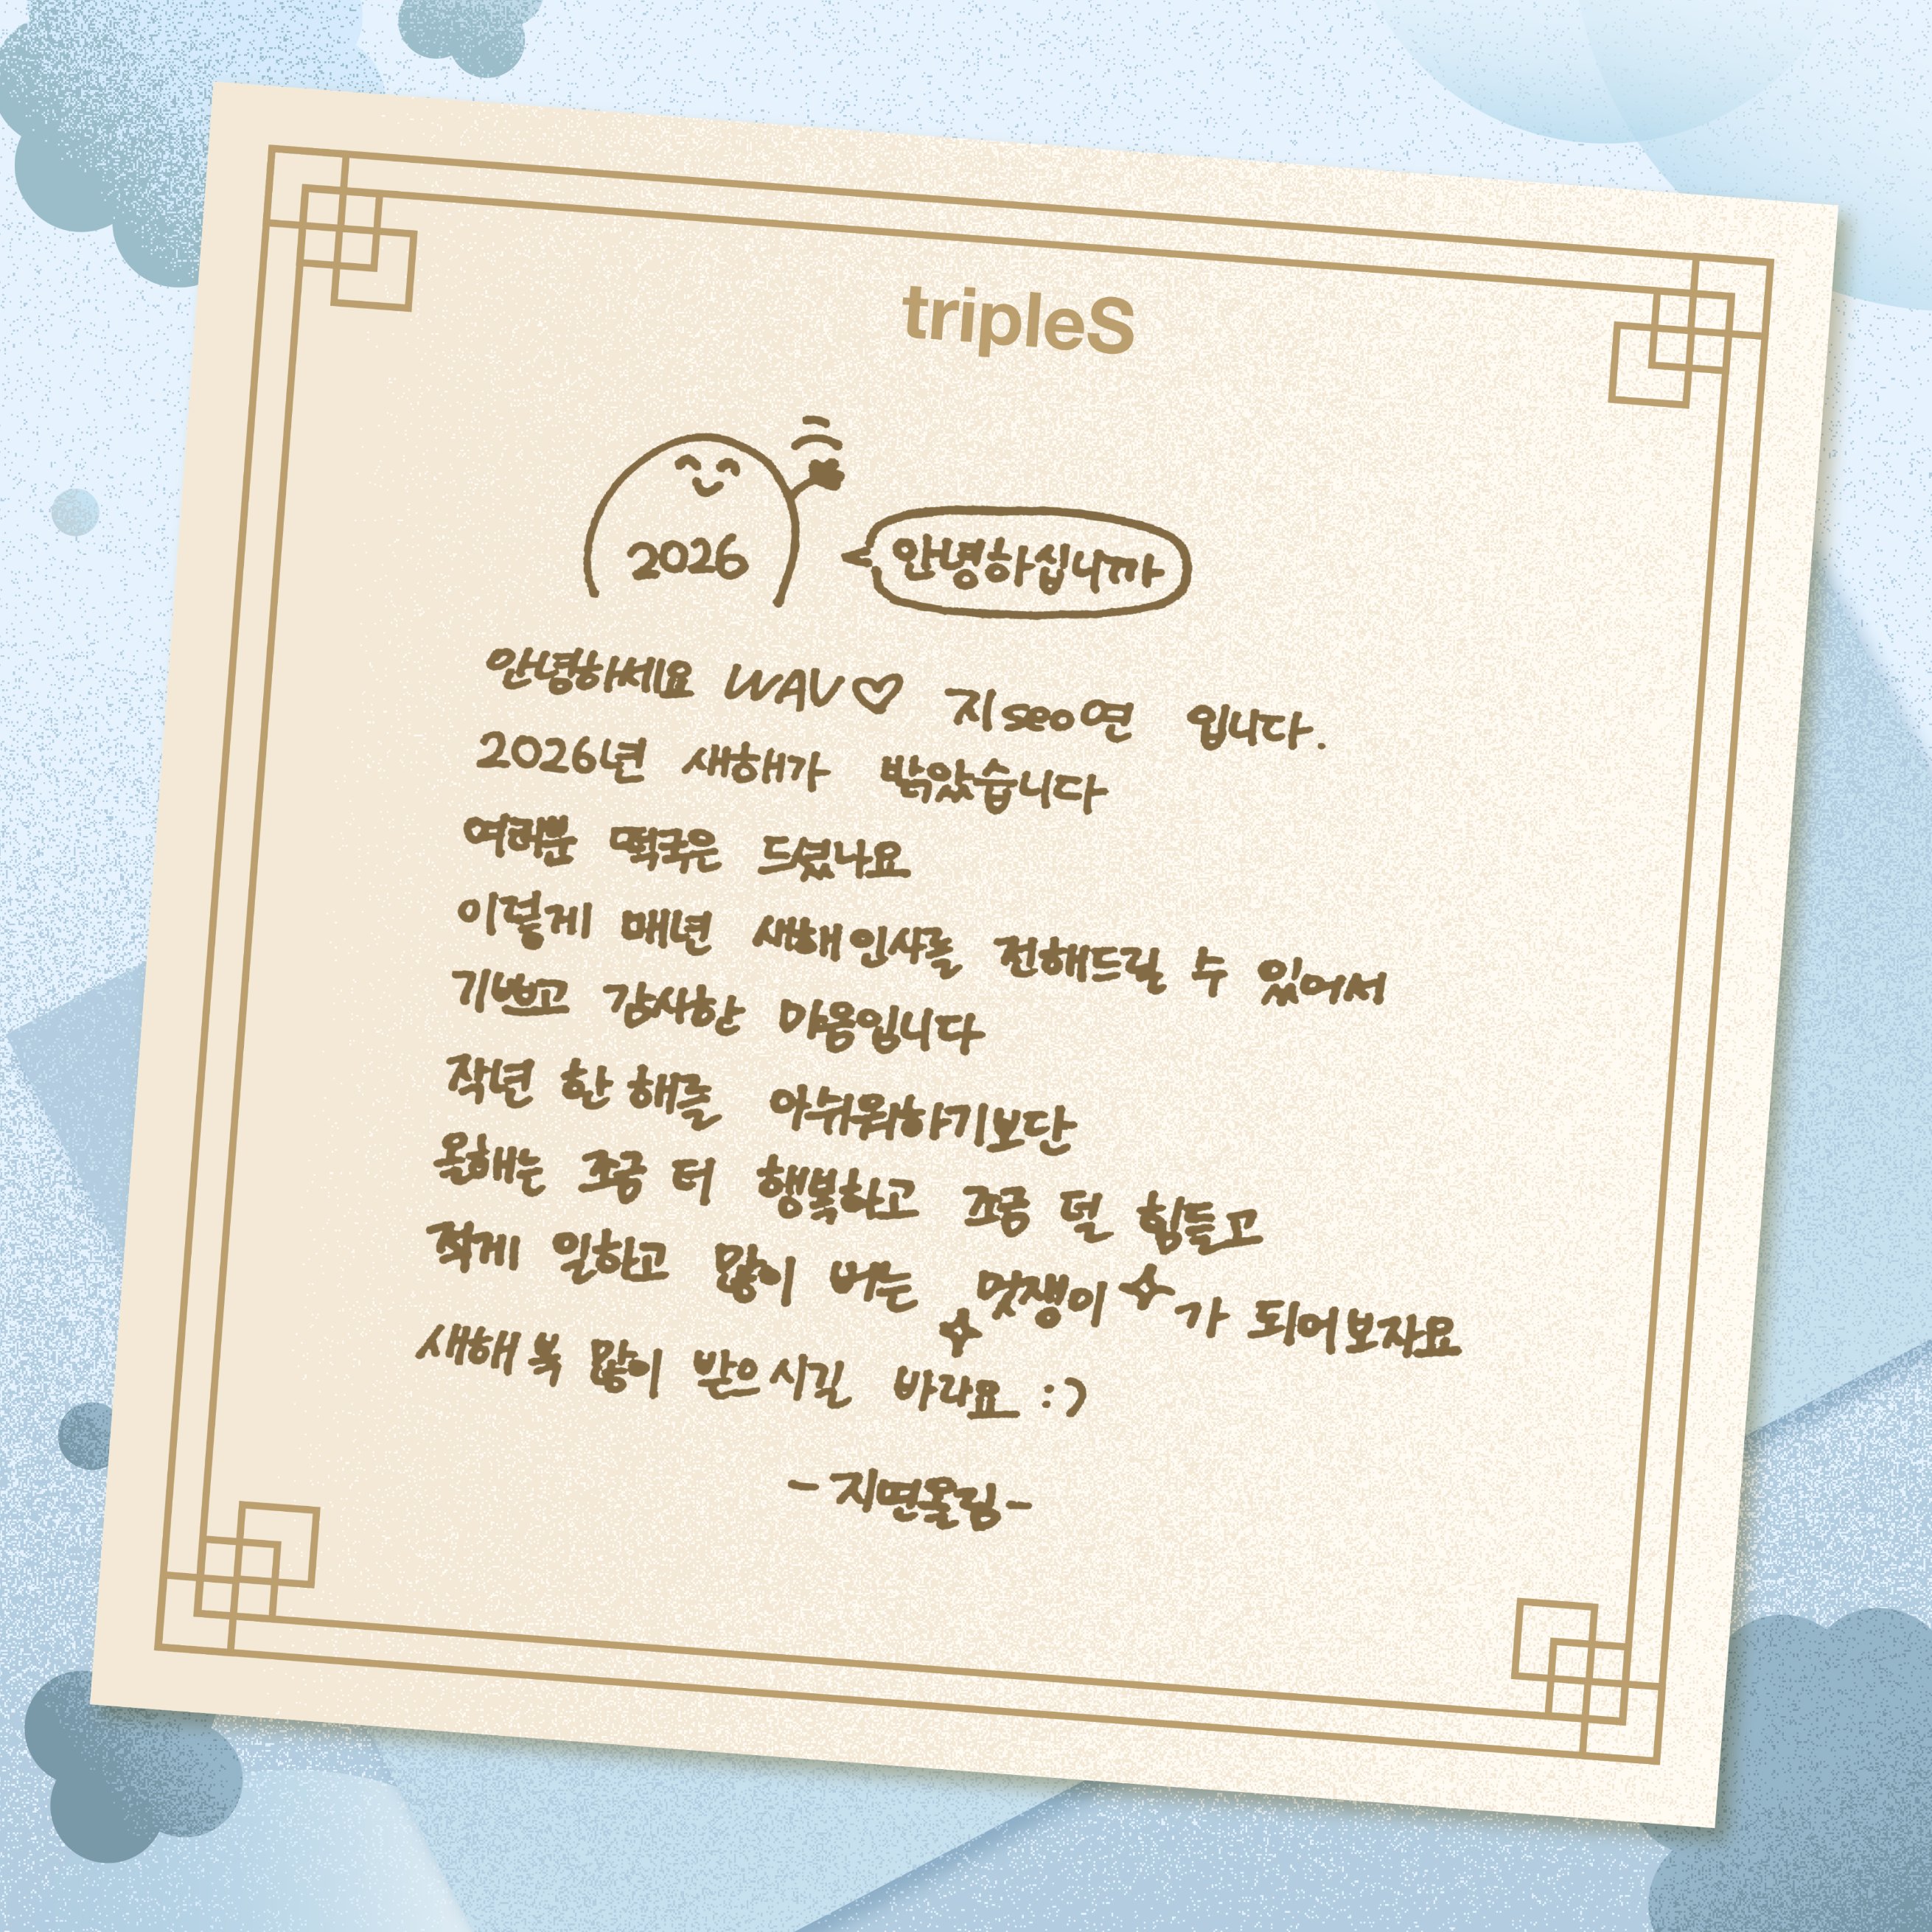 tripleS
2026
안녕하십니까
안녕하세요 WAV♡ 지seo연 입니다.
2026년 새해가 밝았습니다
여러분 떡국은 드셨나요
이렇게 매년 새해인사를 전해드릴 수 있어서
기쁘고 감사한 마음입니다
작년 한 해를 아쉬워하기보단
올해는 조금 더 행복하고 조금 덜 힘들고
적게 일하고 많이 버는 멋쟁이가 되어보자요
새해 복 많이 받으시길 바라요 :)
-지연올림-